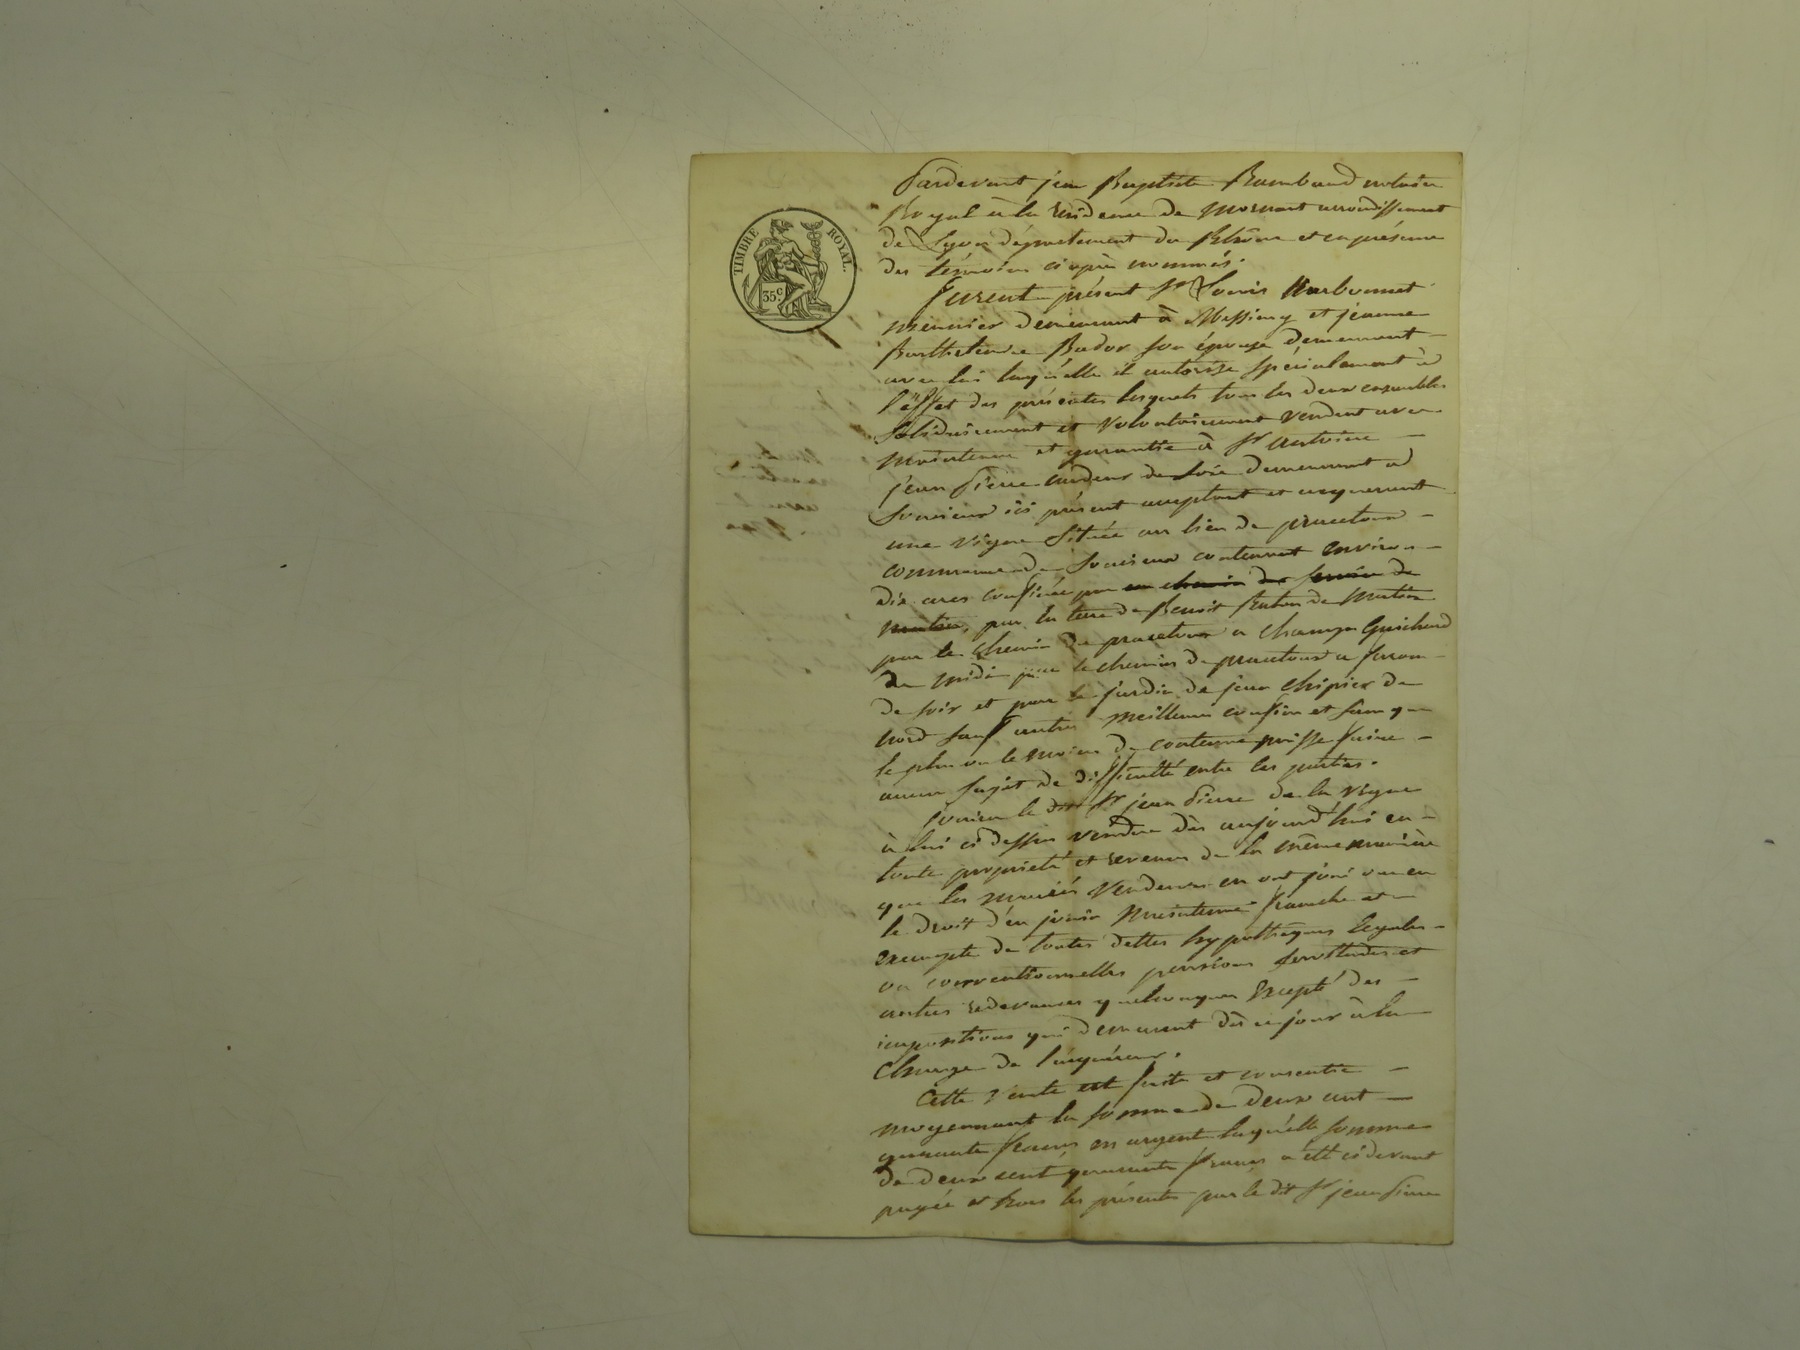 TIMBRE ROYAL.
35c
Pardevant jean Baptiste Rambaud notaire
Royal à la Résidence de Mornant arrondissement
de Lyon département du Rhône et en présence
des témoins ci après nommés.
Furent présent Sr Louis Narbonnet
meunier demeurant à Messimy et jeanne
Barthelemie Bador son épouse demeurant
avec lui laquelle il autorise spécialement à
l'effet des présentes lesquels tous les deux ensembles
Solidairement et volontairement vendent avec
maintenue et garantie à Sr antoine
jean Pierre de Soie demeurant à
Soucieux ici présent acceptant et acquerant
une vigne Située au lieu de
commune de Soucieux contenant environ
dix ares confinée par un chemin de
matin, par la terre de Benoit de Matin
par le chemin de a champ Guichard
de midi par le chemin de a
de soir et par le jardin de jean Chipier de
nord sauf autres meilleurs confins et sans que
le plus ou le moins de contenue puisse faire
aucun sujet de difficulté entre les parties.
jouira le dit Sr jean Pierre de la vigne
à lui ci dessus vendue dès aujourd'hui en
toute propriété et revenu de la même manière
que les mariés vendeurs en ont joui ou eu
le droit d'en jouir maintenue franche et
exempte de toutes dettes hypothèques légales
ou conventionnelles pensions servitudes et
autres redevances quelconques Excepté des
impositions qui demeurent dès ce jour à la
Charge de l'acquéreur.
Cette vente est faite et consentie
moyennant la somme de deux cent
quarante francs en argent laquelle somme
de deux cent quarante francs a été ci devant
payée et hors les présentes par le dit Sr jean Pierre